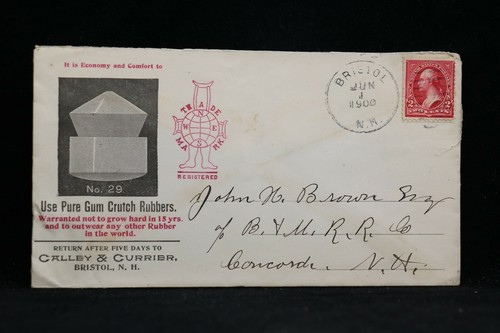 It is Economy and Comfort to
No. 29
Use Pure Gum Crutch Rubbers.
Warranted not to grow hard in 15 yrs.
and to outwear any other Rubber
in the world.
RETURN AFTER FIVE DAYS TO
CALLEY & CURRIER,
BRISTOL, N. H.
TRADE
N
W E
S
MARK
REGISTERED
BRISTOL
JUN
1
1900
N.H.
2 2
John N. Brown Esq
c/o B. & M. R. R. Co
Concord. N. H.